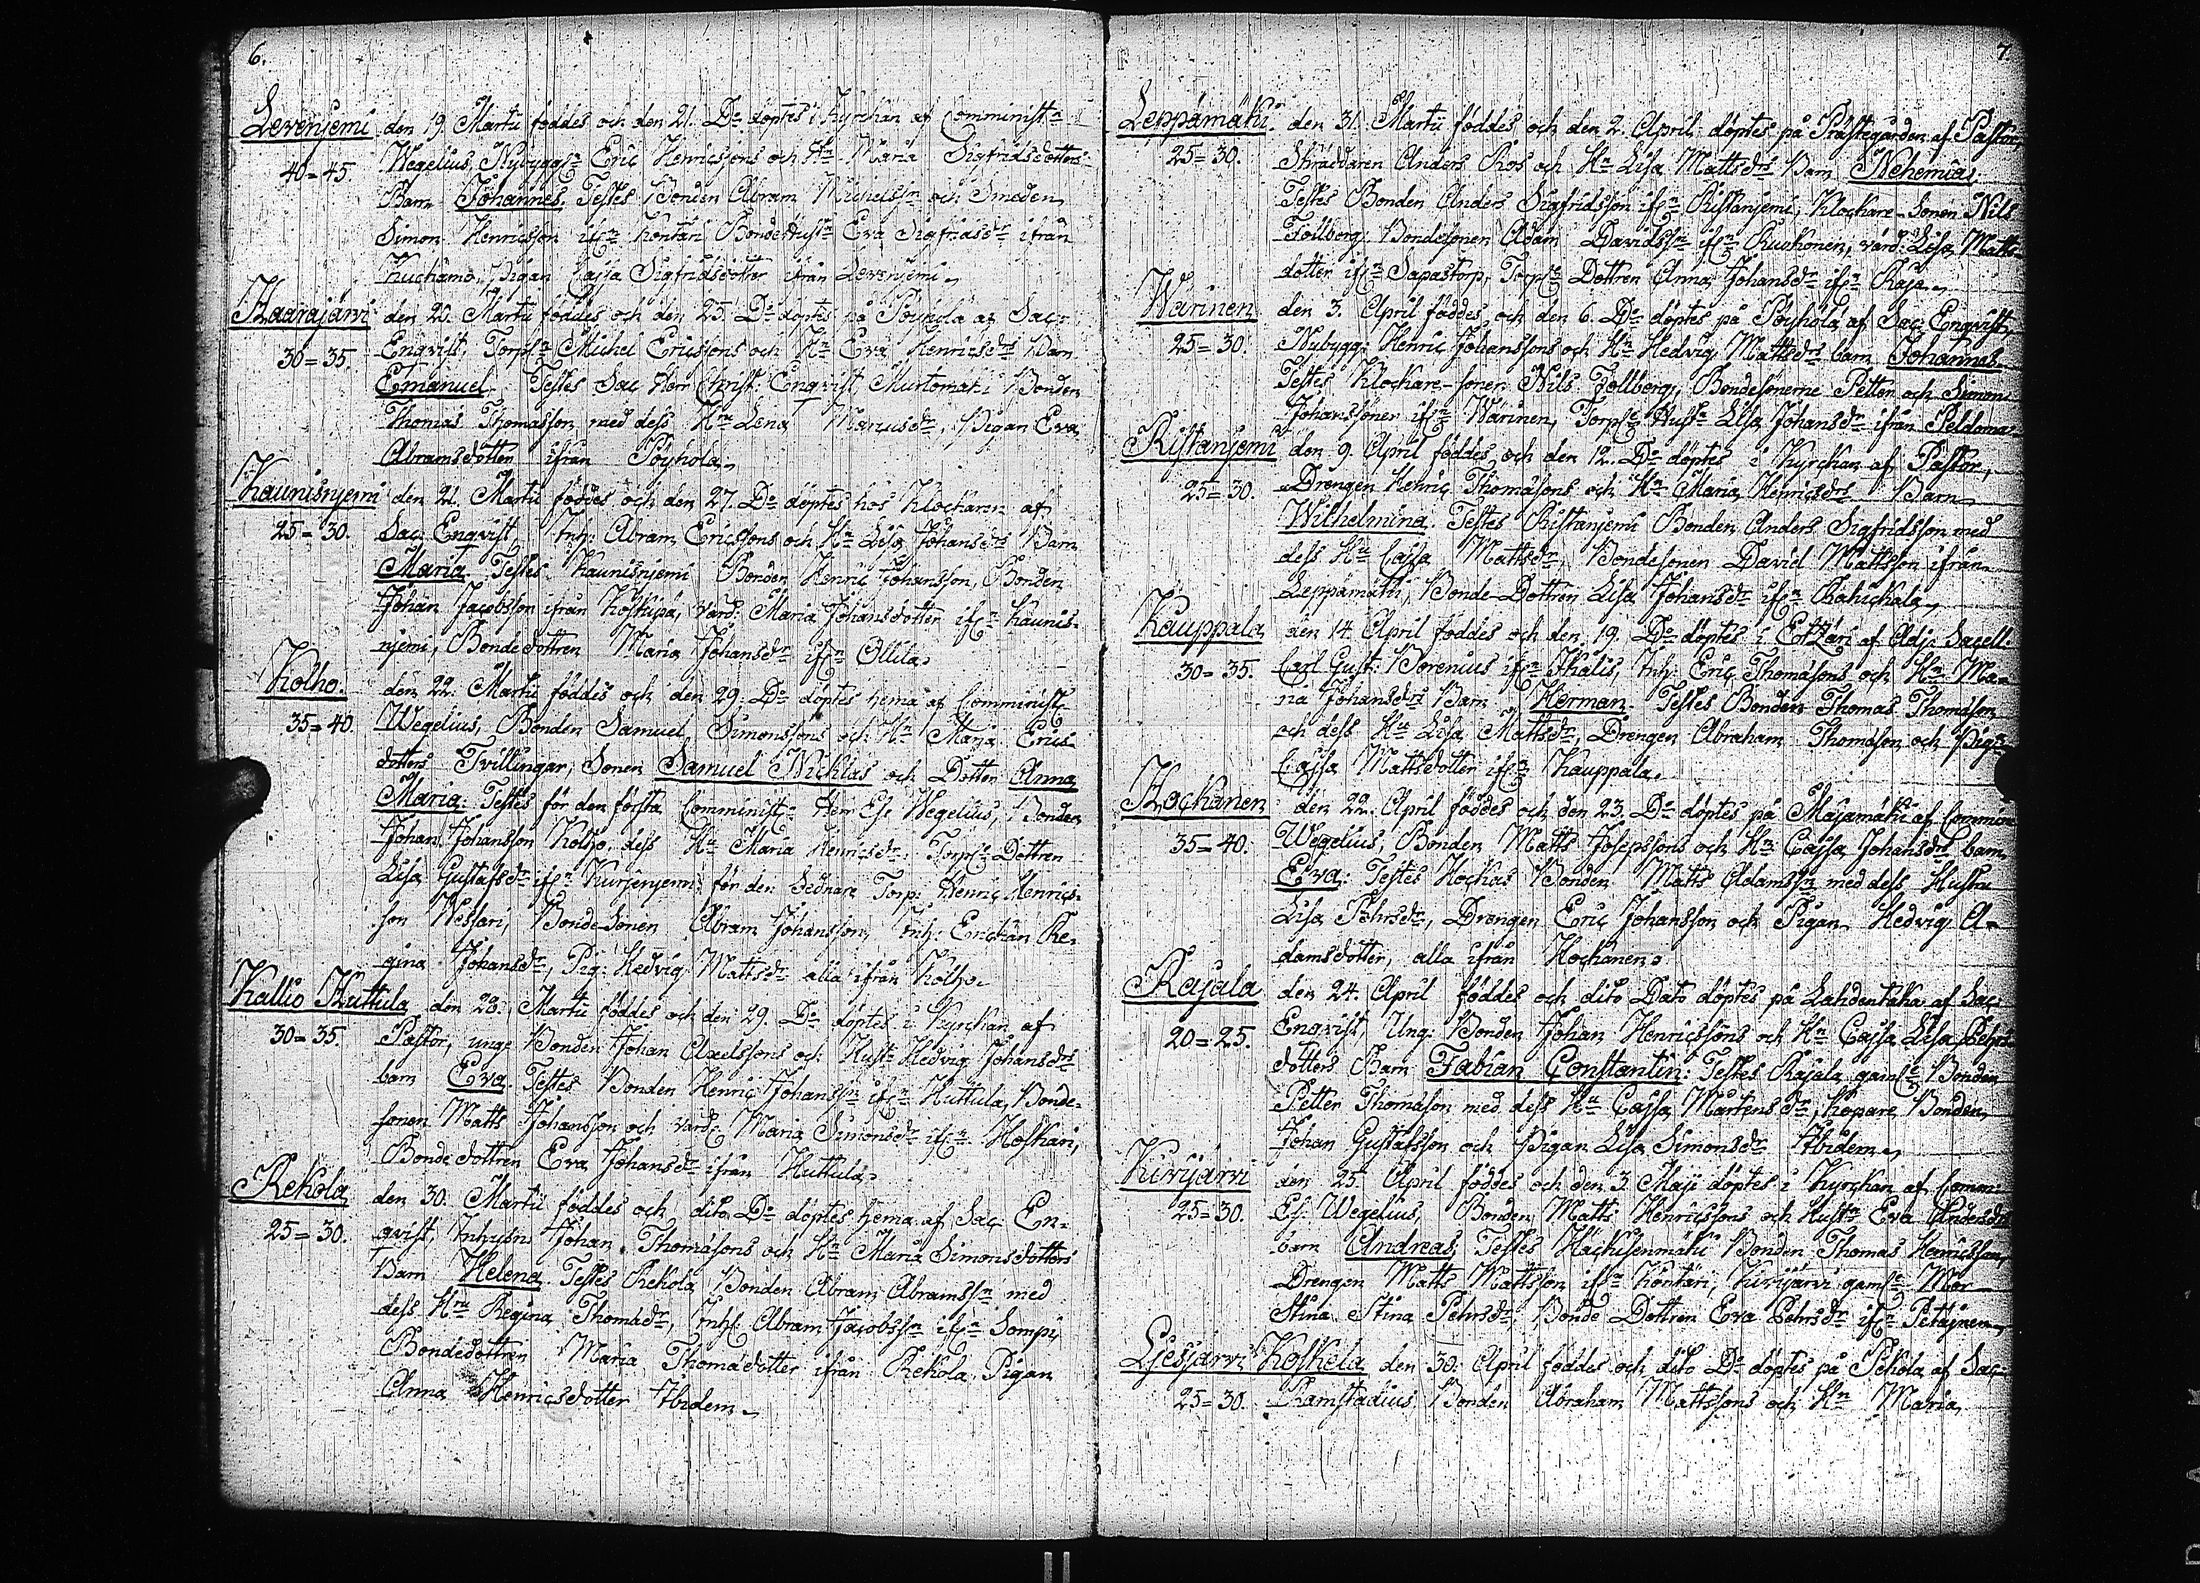 6.
Levenjemi den 19. Martii föddes och den 21. Do döptes i Kyrckan af Comminist.
40=45. Wegelius, Nybygg. Eric Henricssons och Hn Maria Sigfridsdotters
Barn Johannes. Testes Bonden Abram Michelssn och Smeden
Simon Henricsson ifrn Kontari Bondehustn Eva Sigfridsdr ifrån
Kuchamo, Pigan Cajsa Sigfridsdotter ifrån Levenjemi.
Haarajärvi den 20. Martii föddes och den 25. Do döptes på Pöyhola af Sac:
30=35. Enqvist, Torpn Michel Ericssons och Hn Eva Henricsdrs Barn
Emanuel. Testes Sac. Herr Christ: Enqvist, Murtomäki Bonden
Thomas Thomasson med dess Hru Lena Marcusdr, Pigan Eva
Abramsdotter ifrån Pöyhola.
Kaunisnjemi den 21. Martii föddes och den 27. Do döptes hos Klockaren af
25=30. Sac: Enqvist, Inh: Abram Ericssons och Hn Lisa Johansdrs Barn
Maria. Testes Kaunisnjemi Bonden Henric Johansson, Bonden
Johan Jacobsson ifrån Koskipä, värd: Maria Johansdotter ifrn Kaunis-
njemi, Bondedottren Maria Johansdr ifrn Ollila.
Kolho. den 22. Martii föddes och den 29. Do döptes hema af Comminist.
35=40. Wegelius, Bonden Samuel Simonssons och Hn Maja Erics-
dotters Tvillingar, Sonen Samuel Nicklas och Dotter Anna
Maria: Testes för den första Comminist: Herr Es: Wegelius, Bonden
Johan Johansson Kolho, dess Hn Maria Henricsdr, Torp: Dottren
Lisa Gustafsdr ifrn Kurjenjemi; för den Sednare Torp: Henric Henrics-
son Wessari, Bonde-Sonen Abram Johansson, Inh: Enckan Re-
gina Johansdr, Pig: Hedvig Mattsdr alla ifrån Kolho.
Kallio Huttula den 28. Martii föddes och den 29. Do döptes i Kyrckan af
30=35. Pastor, unge Bonden Johan Axelssons och Hust. Hedvig Johansdrs
barn Eva. Testes Bonden Henric Johanssn ifrn Huttula, Bonde-
sonen Matts Johansson och värd: Maria Simonsdr ifrn Koskari,
Bondedottren Eva Johansdr ifrån Huttula.
Rekola den 30. Martii föddes och dito Do döptes hema af Sac: En-
25=30. qvist, Inhysn Johan Thomäsons och Hn Maria Simonsdotters
Barn Helena. Testes Rekola Bonden Abram Abramssn med
dess Hru Regina Thomädr, Inh: Abram Jacobssn ifrn Sompi
Bondedottren Maria Thomädotter ifrån Rekola, Pigan
Anna Henricsdotter Ibidem.
7.
Leppämäki den 31. Martii föddes och den 2. April döptes på Prästegården af Pastor,
25=30. Skräddaren Anders Ros och Hn Lisa Mattsdrs Barn Nehemia.
Testes Bonden Anders Sigfridsson ifrn Ristanjemi, Klockare-Sonen Nils
Follberg, Bondesonen Adam Davidssn ifrn Ruokonen, värd: Lisa Matts-
dotter ifrn Sapastorp, Torp: Dottren Anna Johansdr ifrn Raja.
Wärinen den 3. April föddes och den 6. Do döptes på Pöyhölä af Sac: Enqvist,
25=30. Nybygg: Henric Johanssons och Hn Hedvig Mattsdrs barn Johannes.
Testes Klockare-sonen Nils Follberg, Bondesönerne Petter och Simon
Johanssöner ifrn Wärinen, Torp: Hustr Lisa Johansdr ifrån Peldoma-
Ristanjemi den 9. April föddes och den 12. Do döptes i Kyrckan af Pastor,
25=30. Drengen Henric Thomäsons och Hn Maria Henricsdrs Barn
Wilhelmina. Testes Ristanjemi Bonden Anders Sigfridsson med
dess Hu Cajsa Mattsdr, Bondesonen David Mattsson ifrån
Leppämäki, Bonde-Dottren Lisa Johansdr ifrn Rahickala.
Kauppala den 14. April föddes och den 19. Do döptes i Etzäri af Adj: Sacell:
30=35. Carl Gust: Borenius ifrn Ikalis, Inh: Eric Thomäsons och Hn Ma-
ria Johansdrs Barn Herman. Testes Bonden Thomas Thomäson
och dess Hu Lisa Mattsdr, Drengen Abraham Thomäson och Pign
Cajsa Mattsdotter ifrn Kauppala.
Hockanen den 22. April föddes och den 23. Do döptes på Majamäki af Commin
35=40. Wegelius, Bonden Matts Josepssons och Hn Cajsa Johansdrs barn
Eva: Testes Hockas Bonden Matts Adamssn med dess Hustru
Lisa Pehrsdr, Drengen Eric Johansson och Pigan Hedvig A-
damsdotter, alla ifrån Hockanen.
Rajala den 24. April föddes och dito Dato döptes på Lahdentaka af Sac:
20=25. Enqvist, Ung: Bonden Johan Henricssons och Hn Cajsa Lisa Pehrs-
dotters Barn Fabian Constantin: Testes Rajala gaml: Bonden
Petter Thomäson med dess Hu Cajsa Mårtensdr, Kopare Bonden
Johan Gustafsson och Pigan Lisa Simonsdr Ibidem.
Kivijärvi den 25. April föddes och den 3 Maji döptes i Kyrckan af Comm:
25=30. Es: Wegelius, Bonden Matts Henricssons och Hustr Eva Andersdrs
barn Andreas. Testes Häckisenmäki Bonden Thomas Henricsson,
Drengen Matts Mattsson ifrn Köntäri, Kivijärvi gaml: Mor
Stina Stina Pehrsdr, Bonde Dottren Eva Pehrsdr ifrn Petäjnen.
Ljesjärvi Koskela den 30. April föddes och dito Do döptes på Pekola af Sac:
25=30. Ramstadius, Bonden Abraham Mattssons och Hn Maria